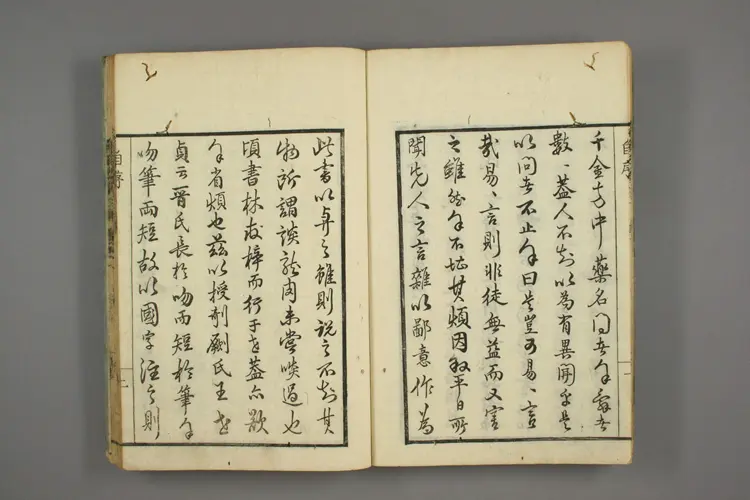 千金方中藥名同者余
數、蓋人不知以為有異聞乎是
以問者不止余曰是豈可易、言
哉易、言則非徒無益而又害
之雖然余不堪其煩因取平日所
聞先人之言雜以鄙意作為
此書以弁之雖則說之不知其
物所謂談龍肉未嘗啖過也
頃書林求梓而行于世蓋亦欲
余省煩也茲以授剞劂氏王世
貞云晉氏長於吻而短於筆余
吻筆両短故以國字注之則
自序
自序